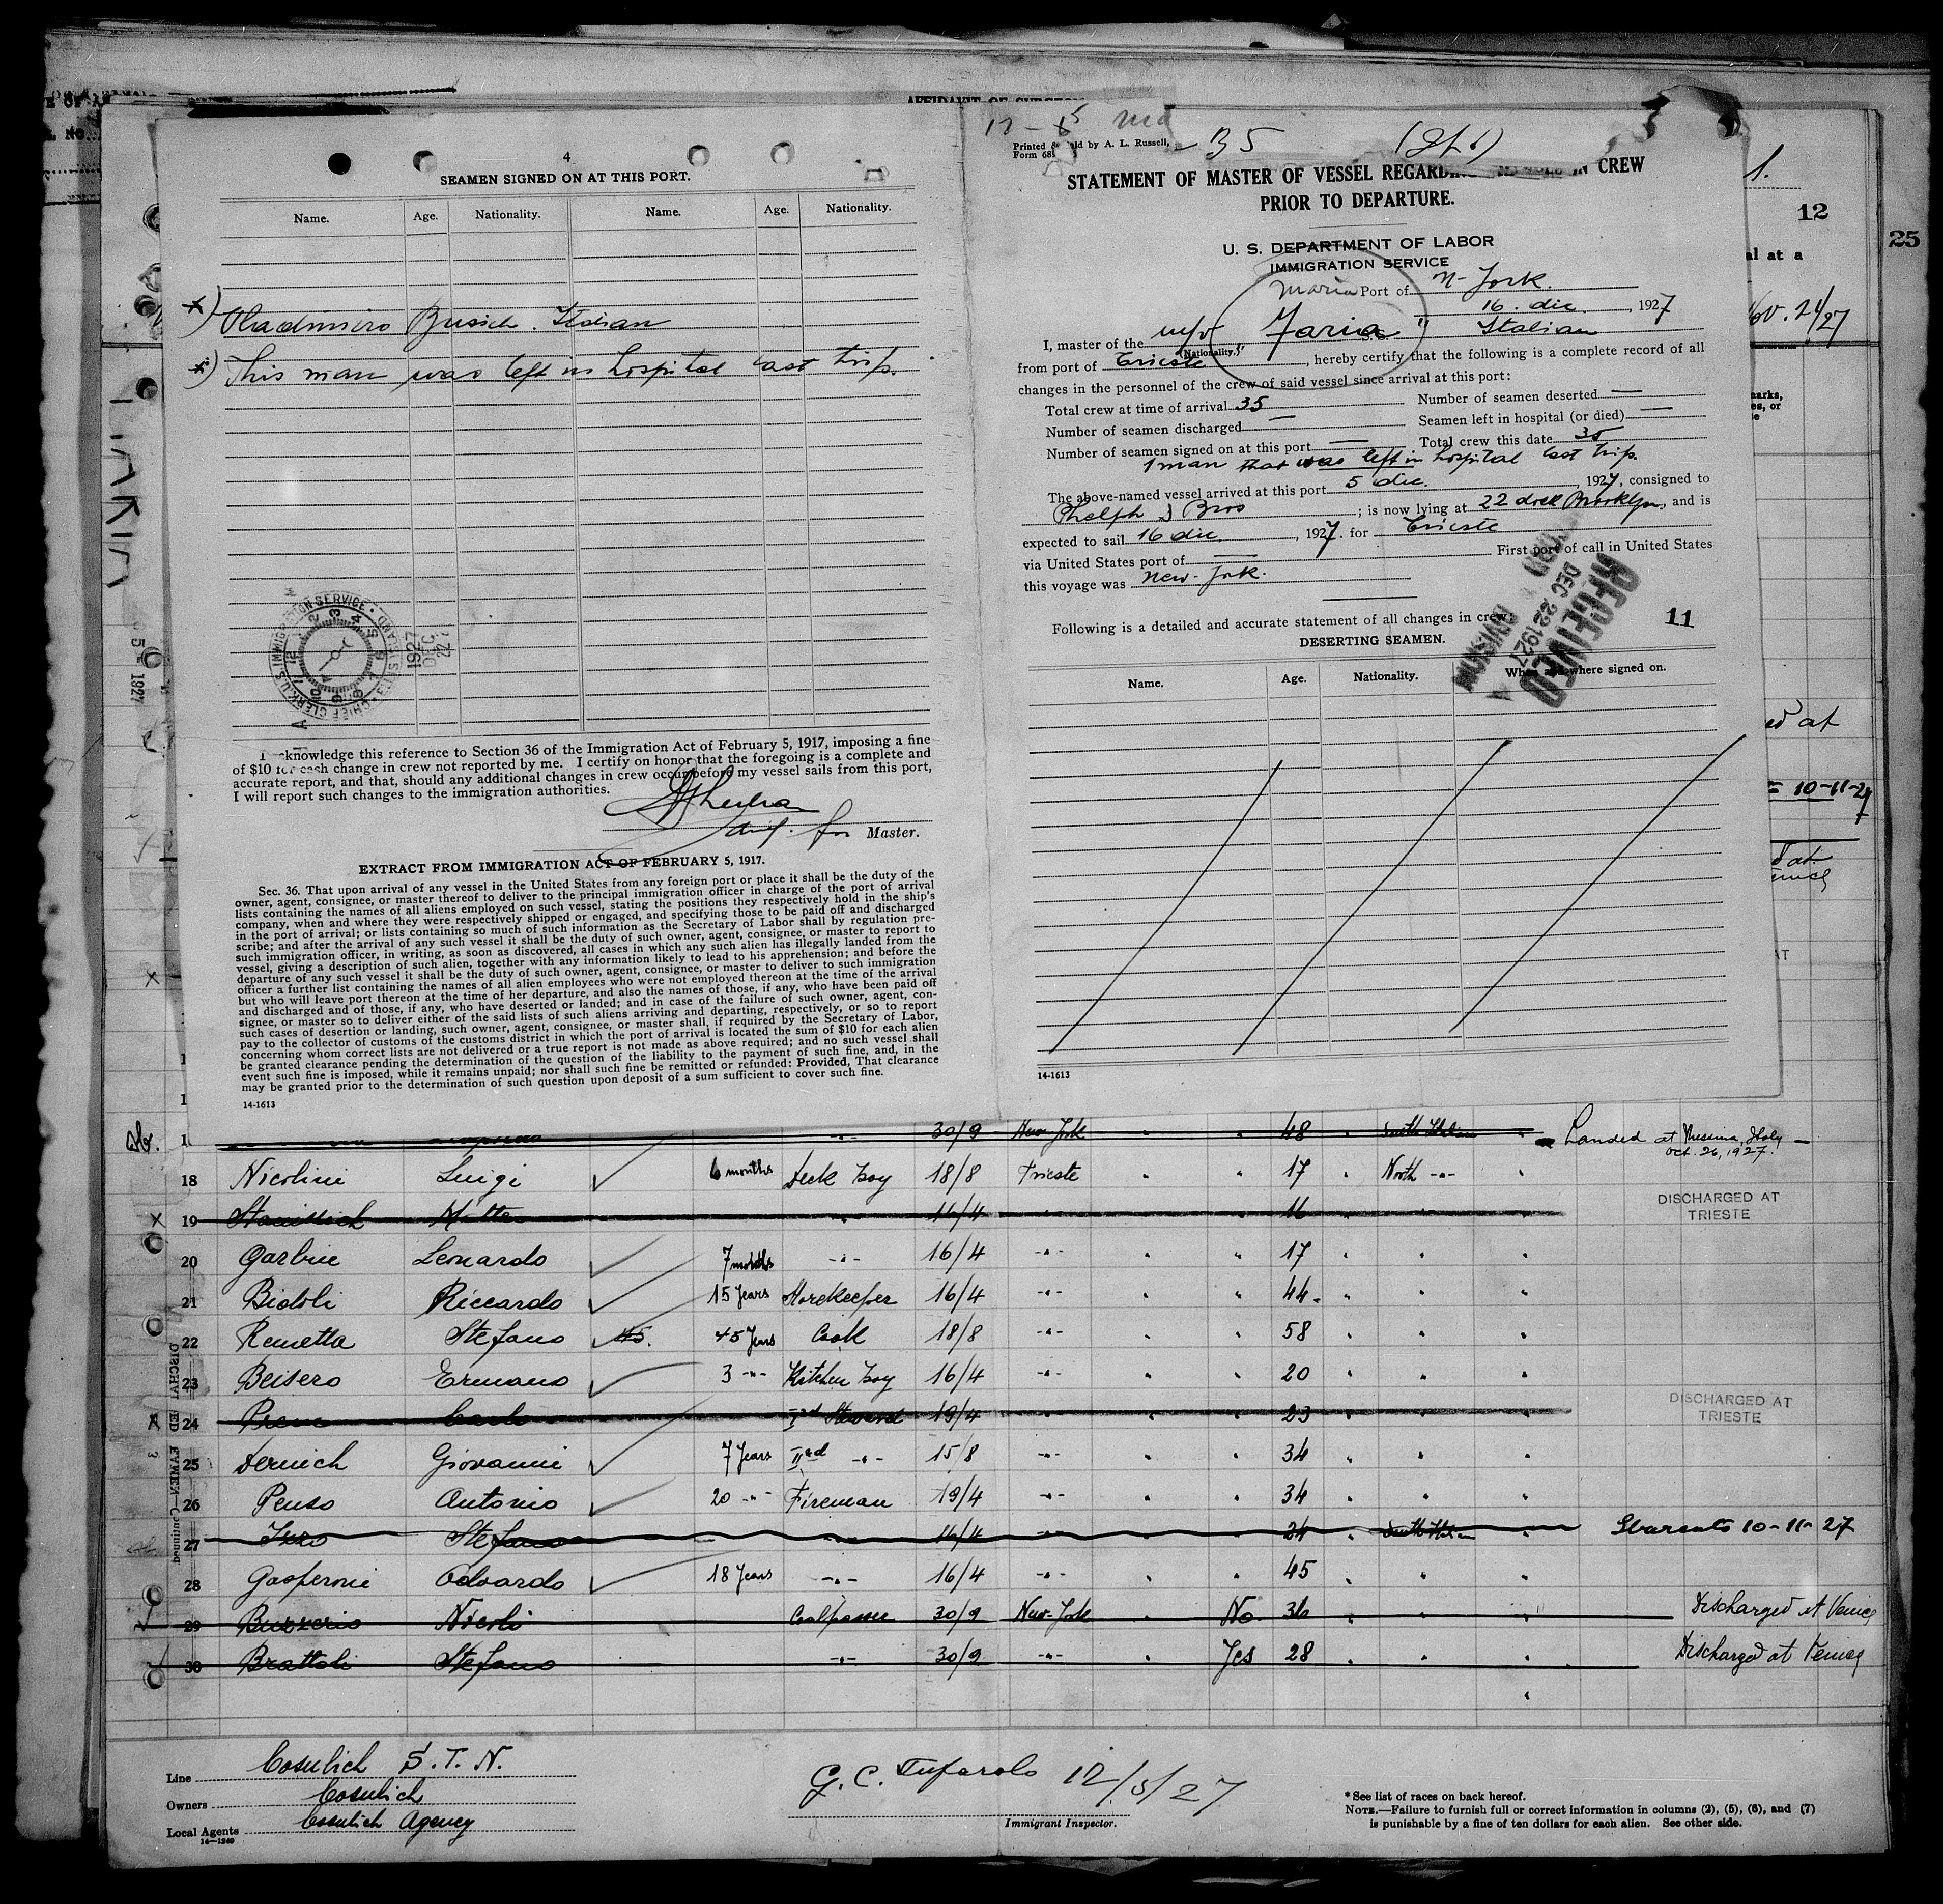 4
SEAMEN SIGNED ON AT THIS PORT.
Name. Age. Nationality. Name. Age. Nationality.
x) Vladimiro Busich. Italian
x) This man was left in hospital last trip.
I acknowledge this reference to Section 36 of the Immigration Act of February 5, 1917, imposing a fine
of $10 for each change in crew not reported by me. I certify on honor that the foregoing is a complete and
accurate report, and that, should any additional changes in crew occur before my vessel sails from this port,
I will report such changes to the immigration authorities.
for Master.
EXTRACT FROM IMMIGRATION ACT OF FEBRUARY 5, 1917.
Sec. 36. That upon arrival of any vessel in the United States from any foreign port or place it shall be the duty of the
owner, agent, consignee, or master thereof to deliver to the principal immigration officer in charge of the port of arrival
lists containing the names of all aliens employed on such vessel, stating the positions they respectively hold in the ship's
company, when and where they were respectively shipped or engaged, and specifying those to be paid off and discharged
in the port of arrival; or lists containing so much of such information as the Secretary of Labor shall by regulation pre-
scribe; and after the arrival of any such vessel it shall be the duty of such owner, agent, consignee, or master to report to
such immigration officer, in writing, as soon as discovered, all cases in which any such alien has illegally landed from the
vessel, giving a description of such alien, together with any information likely to lead to his apprehension; and before the
departure of any such vessel it shall be the duty of such owner, agent, consignee, or master to deliver to such immigration
officer a further list containing the names of all alien employees who were not employed thereon at the time of the arrival
but who will leave port thereon at the time of her departure, and also the names of those, if any, who have been paid off
and discharged and of those, if any, who have deserted or landed; and in case of the failure of such owner, agent, con-
signee, or master so to deliver either of the said lists of such aliens arriving and departing, respectively, or so to report
such cases of desertion or landing, such owner, agent, consignee, or master shall, if required by the Secretary of Labor,
pay to the collector of customs of the customs district in which the port of arrival is located the sum of $10 for each alien
concerning whom correct lists are not delivered or a true report is not made as above required; and no such vessel shall
be granted clearance pending the determination of the question of the liability to the payment of such fine, and, in the
event such fine is imposed, while it remains unpaid; nor shall such fine be remitted or refunded: Provided, That clearance
may be granted prior to the determination of such question upon deposit of a sum sufficient to cover such fine.
14-1613
Printed & sold by A. L. Russell,
Form 689
35
STATEMENT OF MASTER OF VESSEL REGARDING CHANGES IN CREW
PRIOR TO DEPARTURE.
U. S. DEPARTMENT OF LABOR
IMMIGRATION SERVICE
Maria Port of N-York.
16. dic. , 1927
I, master of the m/v Maria " Italian
(Nationality.)
from port of Trieste , hereby certify that the following is a complete record of all
changes in the personnel of the crew of said vessel since arrival at this port:
Total crew at time of arrival 35 Number of seamen deserted —
Number of seamen discharged — Seamen left in hospital (or died) —
Number of seamen signed on at this port — Total crew this date 35
1 man that was left in hospital last trip.
The above-named vessel arrived at this port 5 dic. , 1927, consigned to
Phelph & Bros ; is now lying at 22 dock Brooklyn, and is
expected to sail 16 dic. , 1927. for Trieste
via United States port of — First port of call in United States
this voyage was New-York.
RECEIVED
DEC 22 1927
DIVISION
11
Following is a detailed and accurate statement of all changes in crew:
DESERTING SEAMEN.
Name. Age. Nationality. When and where signed on.
14-1613
12
25
Nov. 21/27
10-11-27
30/9 New York 48 South Italian Landed at Messina, Italy —
Oct. 26, 1927.
18 Nicolini Luigi 6 months Deck Boy 18/8 Trieste " " 17 " North -"- "
19 Matteo " 16/4 -"- " " 16 " " " DISCHARGED AT TRIESTE
20 Garbin Leonardo 7 months -"- 16/4 -"- " " 17 " " "
21 Bidoli Riccardo 15 Years Storekeeper 16/4 -"- " " 44 " " "
22 Remetta Stefano 45. 45 Years Cook 18/8 -"- " " 58 " " "
23 Beisero Ermano 3 -"- Kitchen Boy 16/4 -"- " " 20 " " "
24 Prene Carlo Steward 19/4 -"- " " 23 " " " DISCHARGED AT TRIESTE
25 Dernich Giovanni 7 Years IInd -"- 15/8 -"- " " 34 " " "
26 Penso Antonio 20 -"- Fireman 19/4 -"- " " 34 " " "
27 Stefano -"- 16/4 -"- " " 24 " South Italian " Sbarcato 10-11-27
28 Gasperini Odoardo 18 Years -"- 16/4 -"- " " 45 " " "
29 Buzzerio Nicolo Coalpasser 30/9 New-York " No 36 " " " Discharged at Venice
30 Brattoli Stefano -"- 30/9 -"- Yes 28 " " " Discharged at Venice
Line Cosulich S.T.N.
Owners Cosulich
Local Agents Cosulich Agency
14—1240
G. C. Tufarolo 12/5/27
Immigrant Inspector.
* See list of races on back hereof.
NOTE.—Failure to furnish full or correct information in columns (2), (5), (6), and (7)
is punishable by a fine of ten dollars for each alien. See other side.